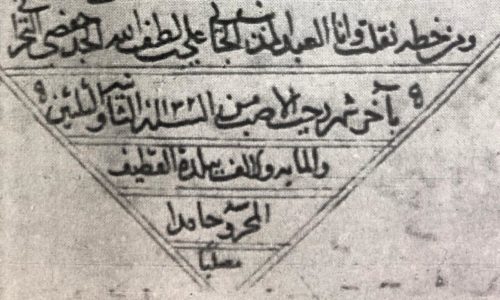 ومن خطه نقلت وانا العبد المذنب الجاني علي بن لطف الله الجد حفصي البحر
بآخر شهر رجب الاصب من السنة الثانية والثلثين
والمايه والالف ببلدة القطيف
المحروسة حامدا
مصليا